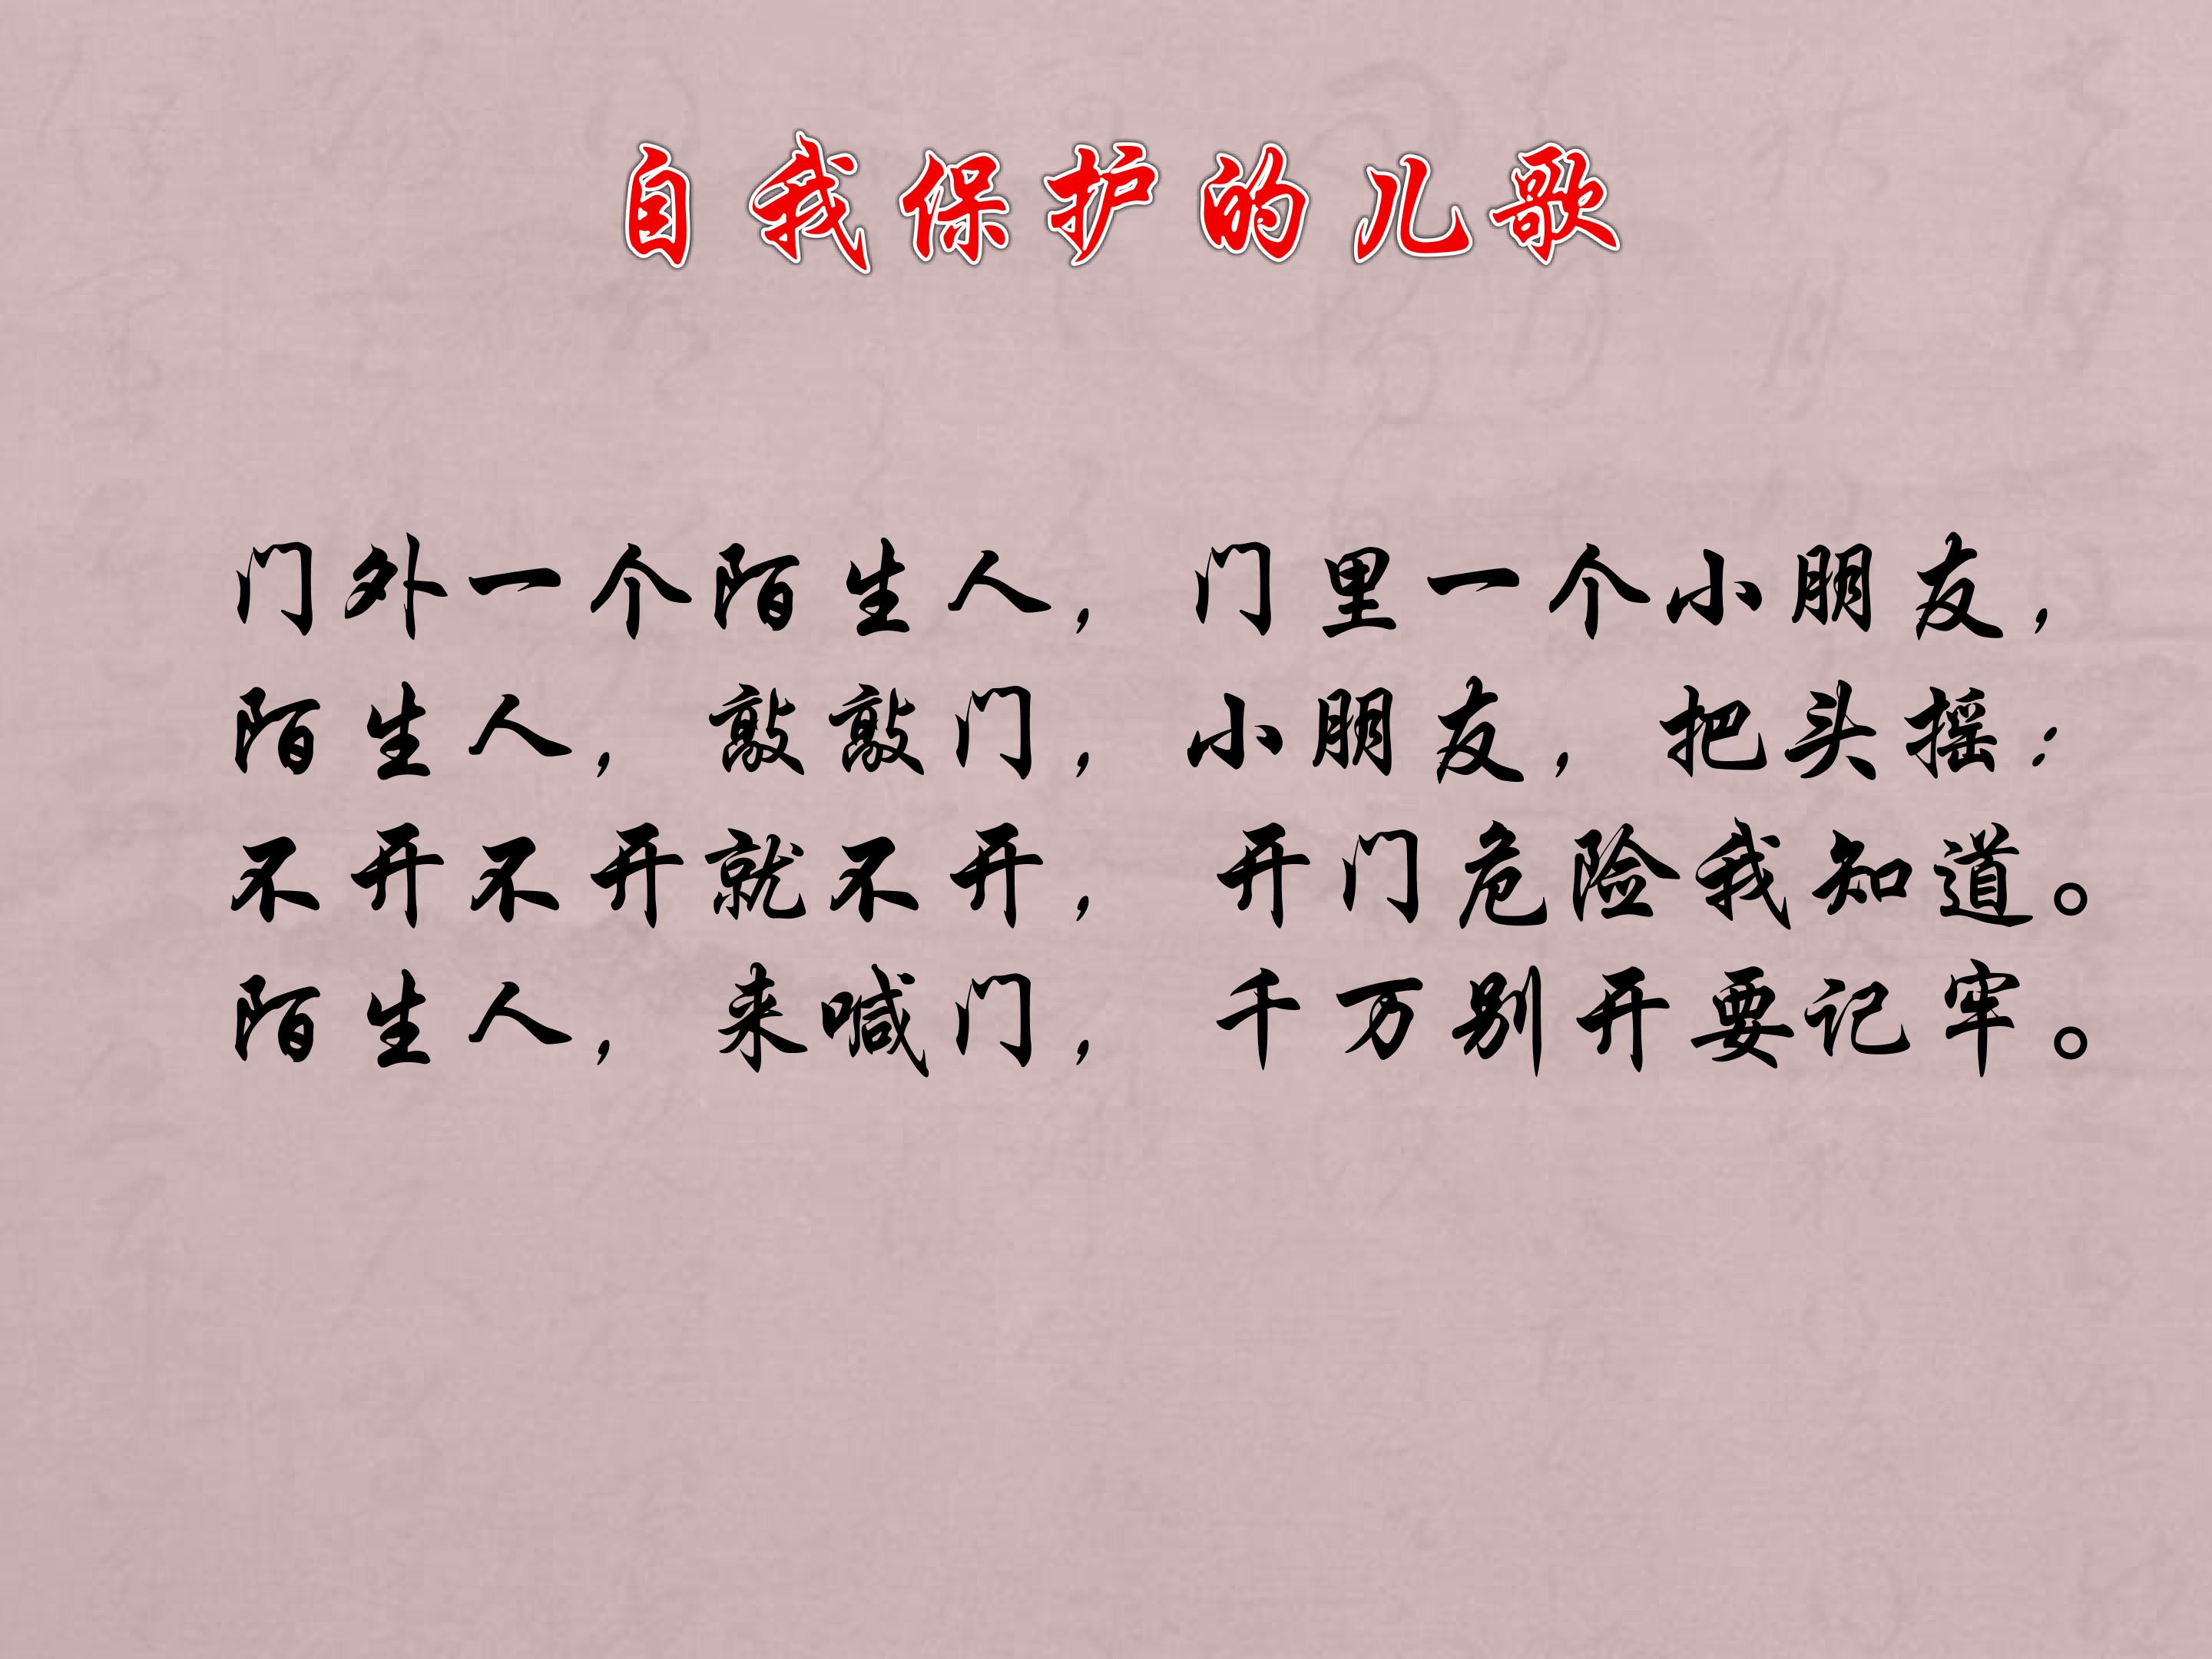 自我保护的儿歌
门外一个陌生人，门里一个小朋友，
陌生人，敲敲门，小朋友，把头摇：
不开不开就不开，开门危险我知道。
陌生人，来喊门，千万别开要记牢。